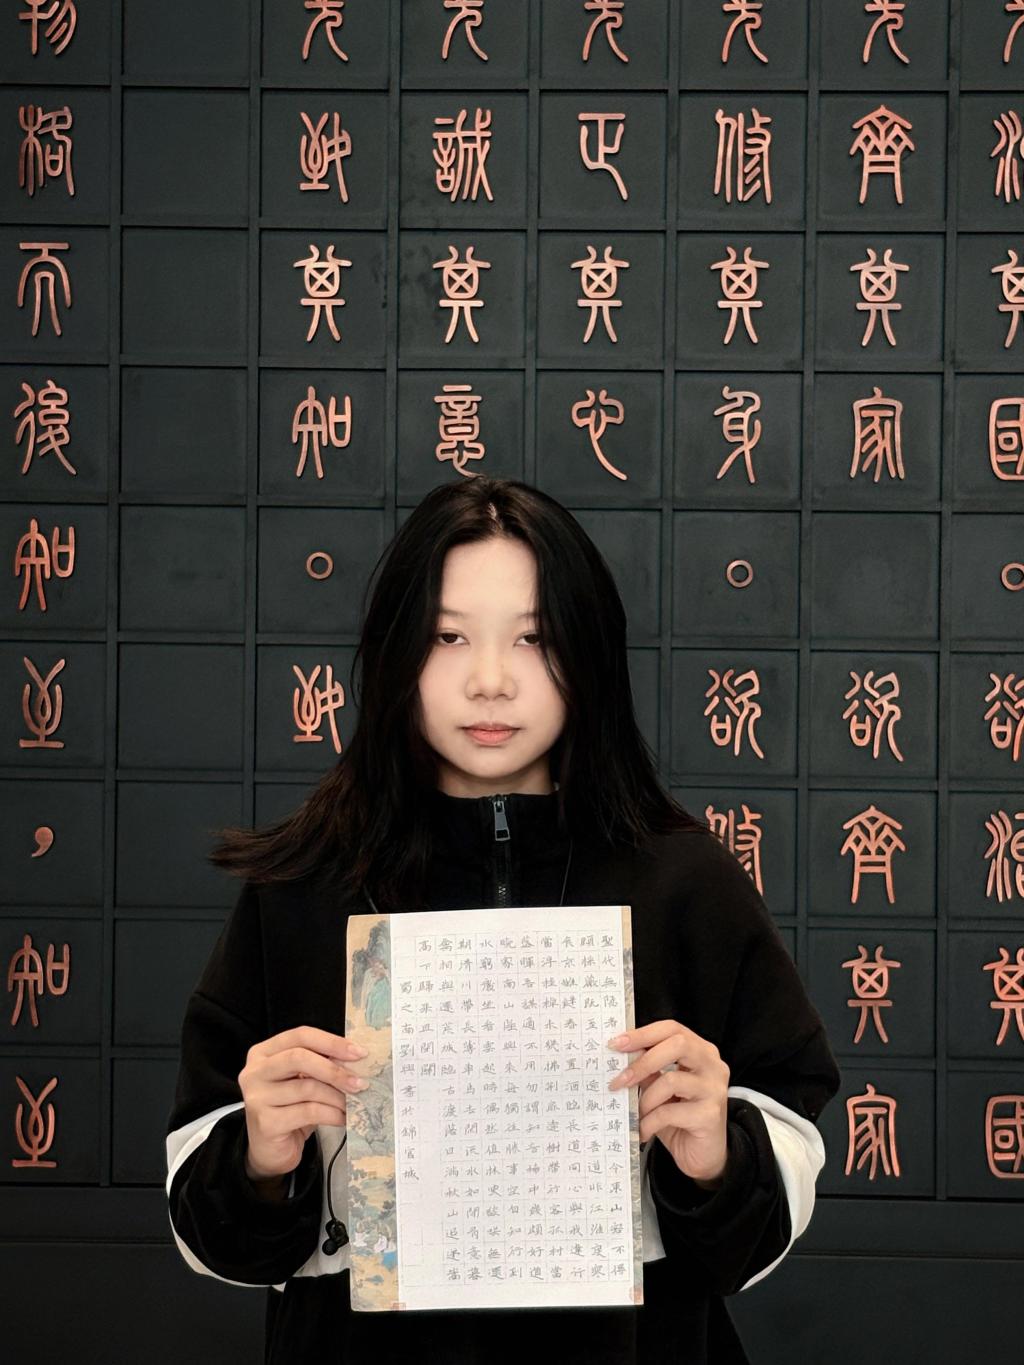 先治其國。欲治其國
先齊其家 欲齊其家
先修其身。欲修
先正其心
先誠其意
先致其知。致
物格而後知至，知至
聖代無隐者靈来歸遂令東山客不得
顧採薇既至金門遠孰云吾道非江淮度寒
食京雒縫春衣置酒臨長道同心與我違行
當浮桂棹未幾拂荊扉遠樹帶行客孤村當
落暉吾謀適不用勿謂知音稀中歲頗好道
晚家南山陲興來每獨往勝事空自知行到
水窮處坐看雲起時偶然值林叟談笑無還
期清川帶長薄車馬去閑閑流水如有意暮
禽相與還荒城臨古渡落日滿秋山迢遞嵩
高下歸來且閉關
蜀之南劉興書於錦官城